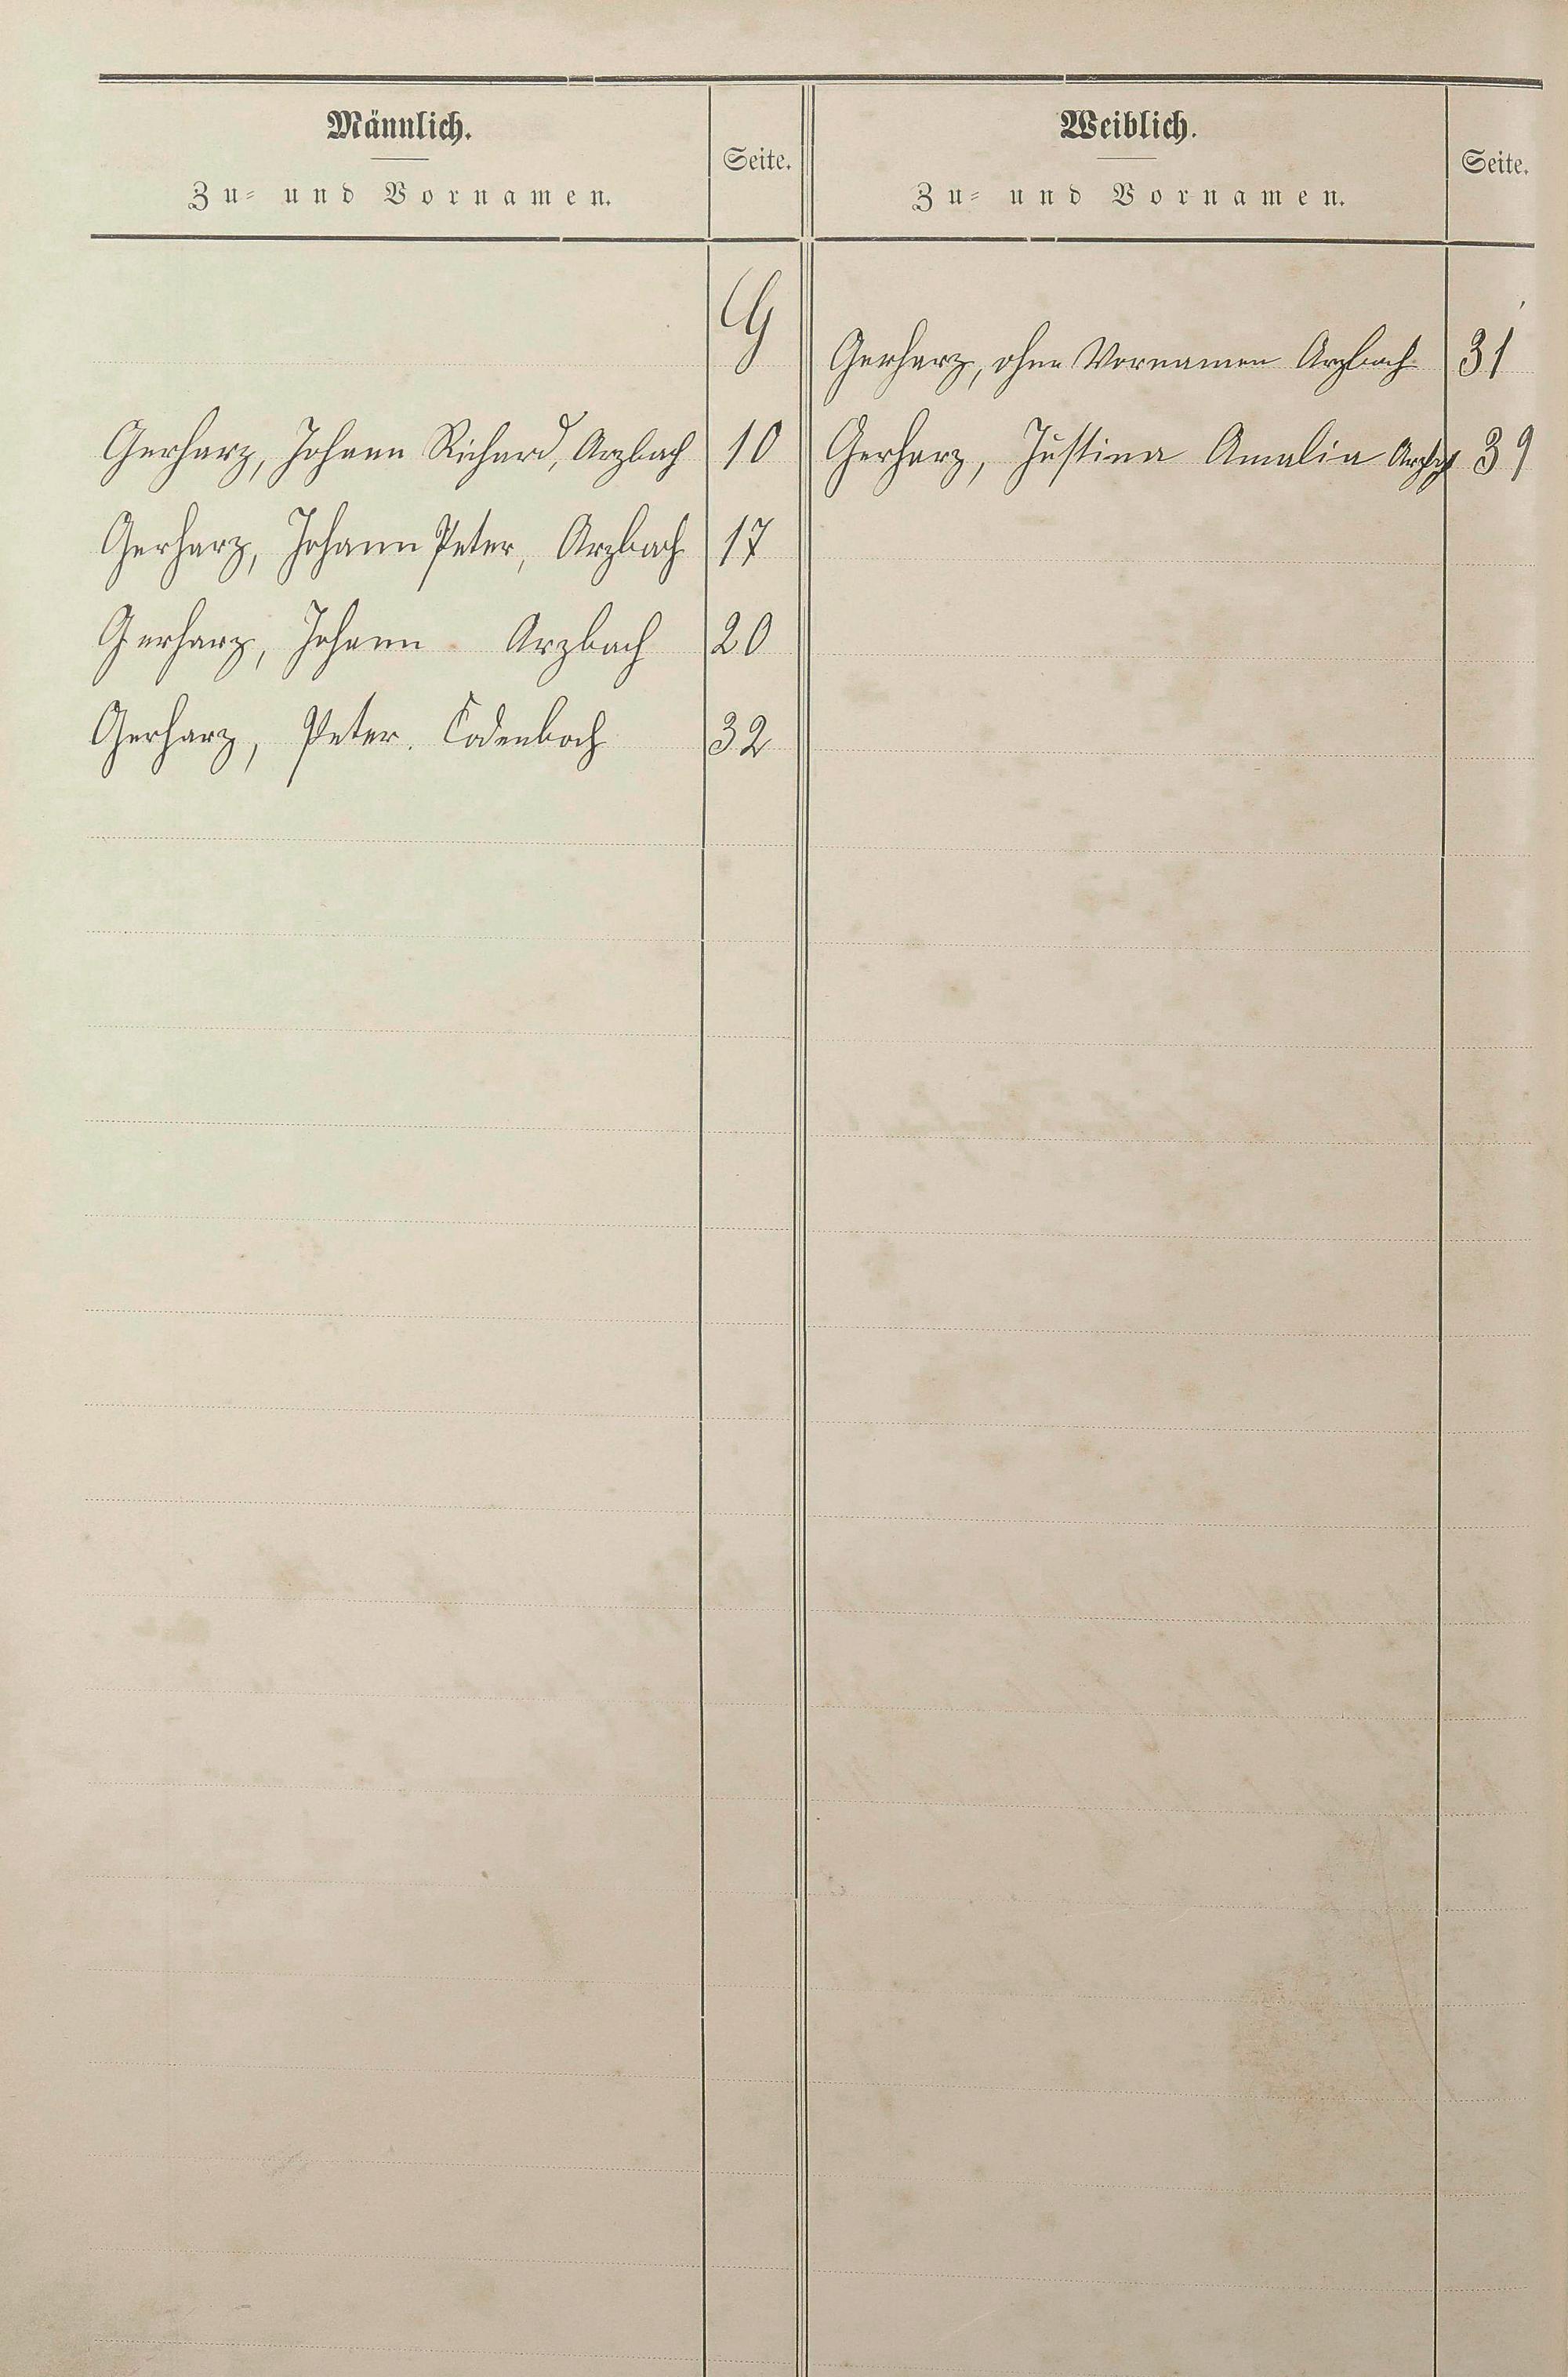 Männlich.
Zu- und Vornamen.
Seite.
Weiblich.
Zu- und Vornamen.
Seite.
G
Gerharz, ohne Vornamen Arzbach 31
Gerharz, Johann Richard, Arzbach 10
Gerharz, Justina Amalia Arzb 39
Gerharz, Johann Peter, Arzbach 17
Gerharz, Johann Arzbach 20
Gerharz, Peter. Cadenbach 32